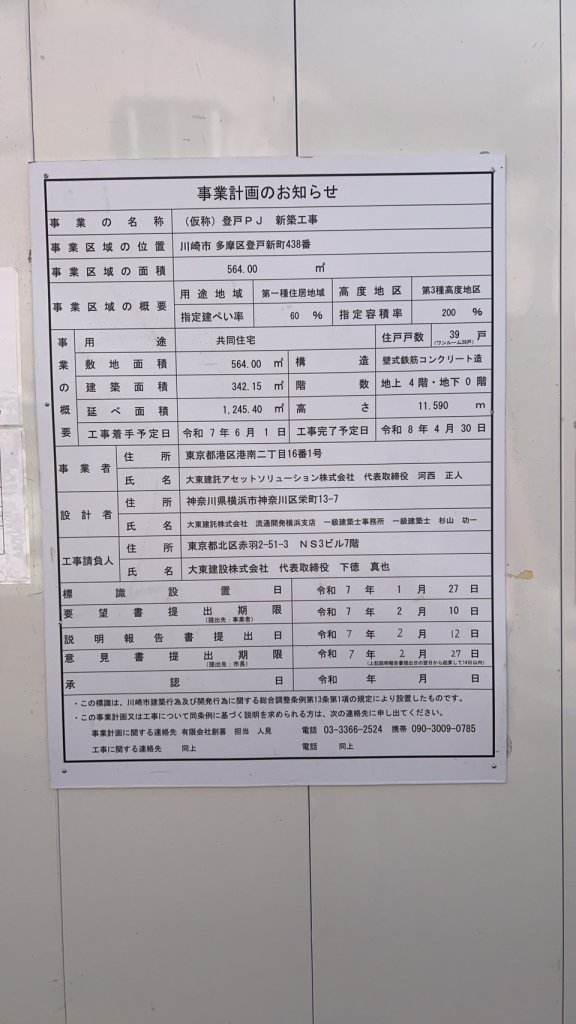 事業計画のお知らせ
事業の名称 （仮称）登戸ＰＪ 新築工事
事業区域の位置 川崎市 多摩区登戸新町438番
事業区域の面積 564.00 ㎡
事業区域の概要 用途地域 第一種住居地域 高度地区 第3種高度地区
指定建ぺい率 60 % 指定容積率 200 %
事業の概要 用途 共同住宅 住戸戸数 39 戸
(ワンルーム39戸)
敷地面積 564.00 ㎡ 構造 壁式鉄筋コンクリート造
建築面積 342.15 ㎡ 階数 地上 4 階・地下 0 階
延べ面積 1,245.40 ㎡ 高さ 11.590 m
工事着手予定日 令和 7 年 6 月 1 日 工事完了予定日 令和 8 年 4 月 30 日
事業者 住所 東京都港区港南二丁目16番1号
氏名 大東建託アセットソリューション株式会社 代表取締役 河西 正人
設計者 住所 神奈川県横浜市神奈川区栄町13-7
氏名 大東建託株式会社 流通開発横浜支店 一級建築士事務所 一級建築士 杉山 功一
工事請負人 住所 東京都北区赤羽2-51-3 ＮＳ3ビル7階
氏名 大東建設株式会社 代表取締役 下徳 真也
標識設置日 令和 7 年 1 月 27 日
要望書提出期限 令和 7 年 2 月 10 日
(提出先：事業者)
説明報告書提出日 令和 7 年 2 月 12 日
意見書提出期限 令和 7 年 2 月 27 日
(提出先：市長) (上記説明報告書提出日の翌日から起算して14日以内)
承認日 令和 年 月 日
・この標識は、川崎市建築行為及び開発行為に関する総合調整条例第13条第1項の規定により設置したものです。
・この事業計画又は工事について同条例に基づく説明を求められる方は、次の連絡先に申し出てください。
事業計画に関する連絡先 有限会社創喜 担当 人見 電話 03-3366-2524 携帯 090-3009-0785
工事に関する連絡先 同上 電話 同上